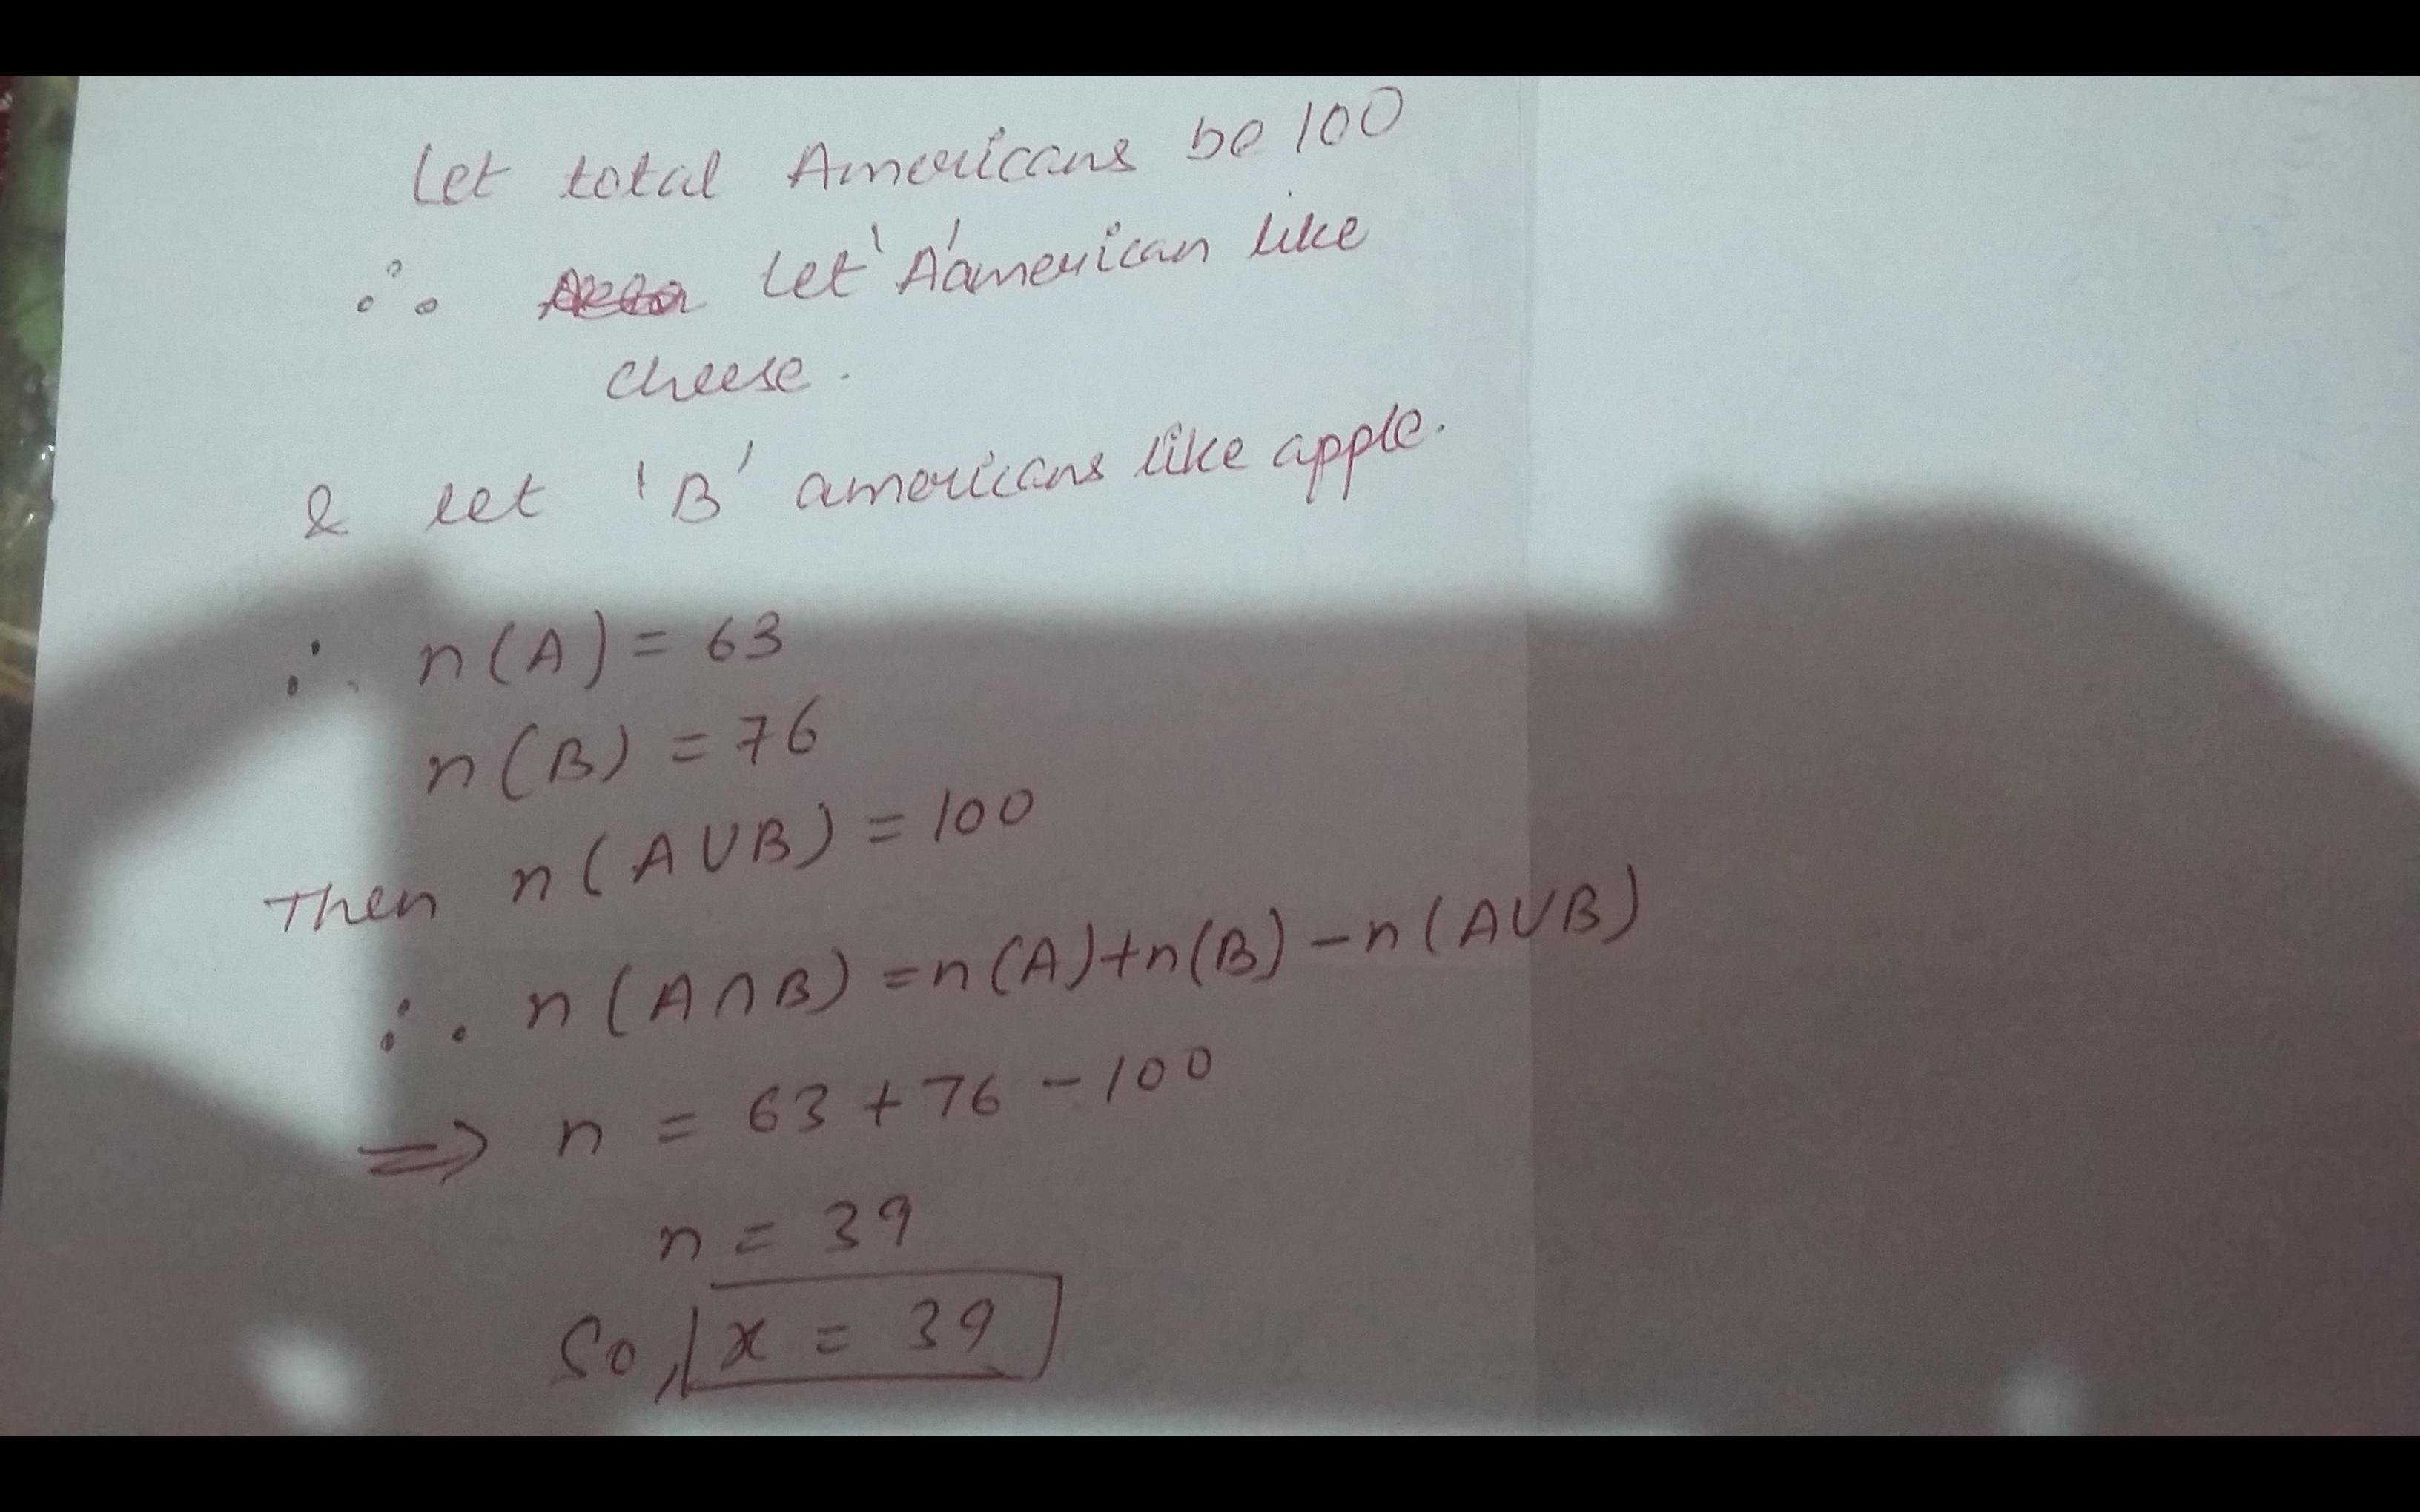 Let total Americans be 100
∴ Let 'A' american like
cheese.
& let 'B' americans like apple.
∴ n(A) = 63
n(B) = 76
Then n(A∪B) = 100
∴ n(A∩B) = n(A)+n(B) - n(A∪B)
⇒ n = 63 + 76 - 100
n = 39
So, x = 39